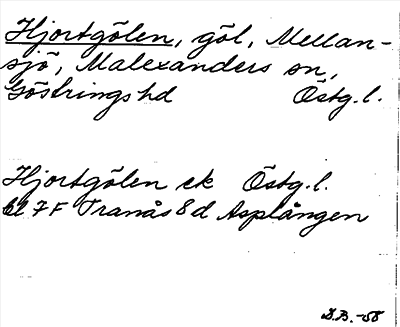 Hjortgölen, göl, Mellan-
sjö, Malexanders sn,
Göstrings hd Östg.l.
Hjortgölen ek Östg.l.
bl 7F Tranås 8d Asplången
S.B.-58